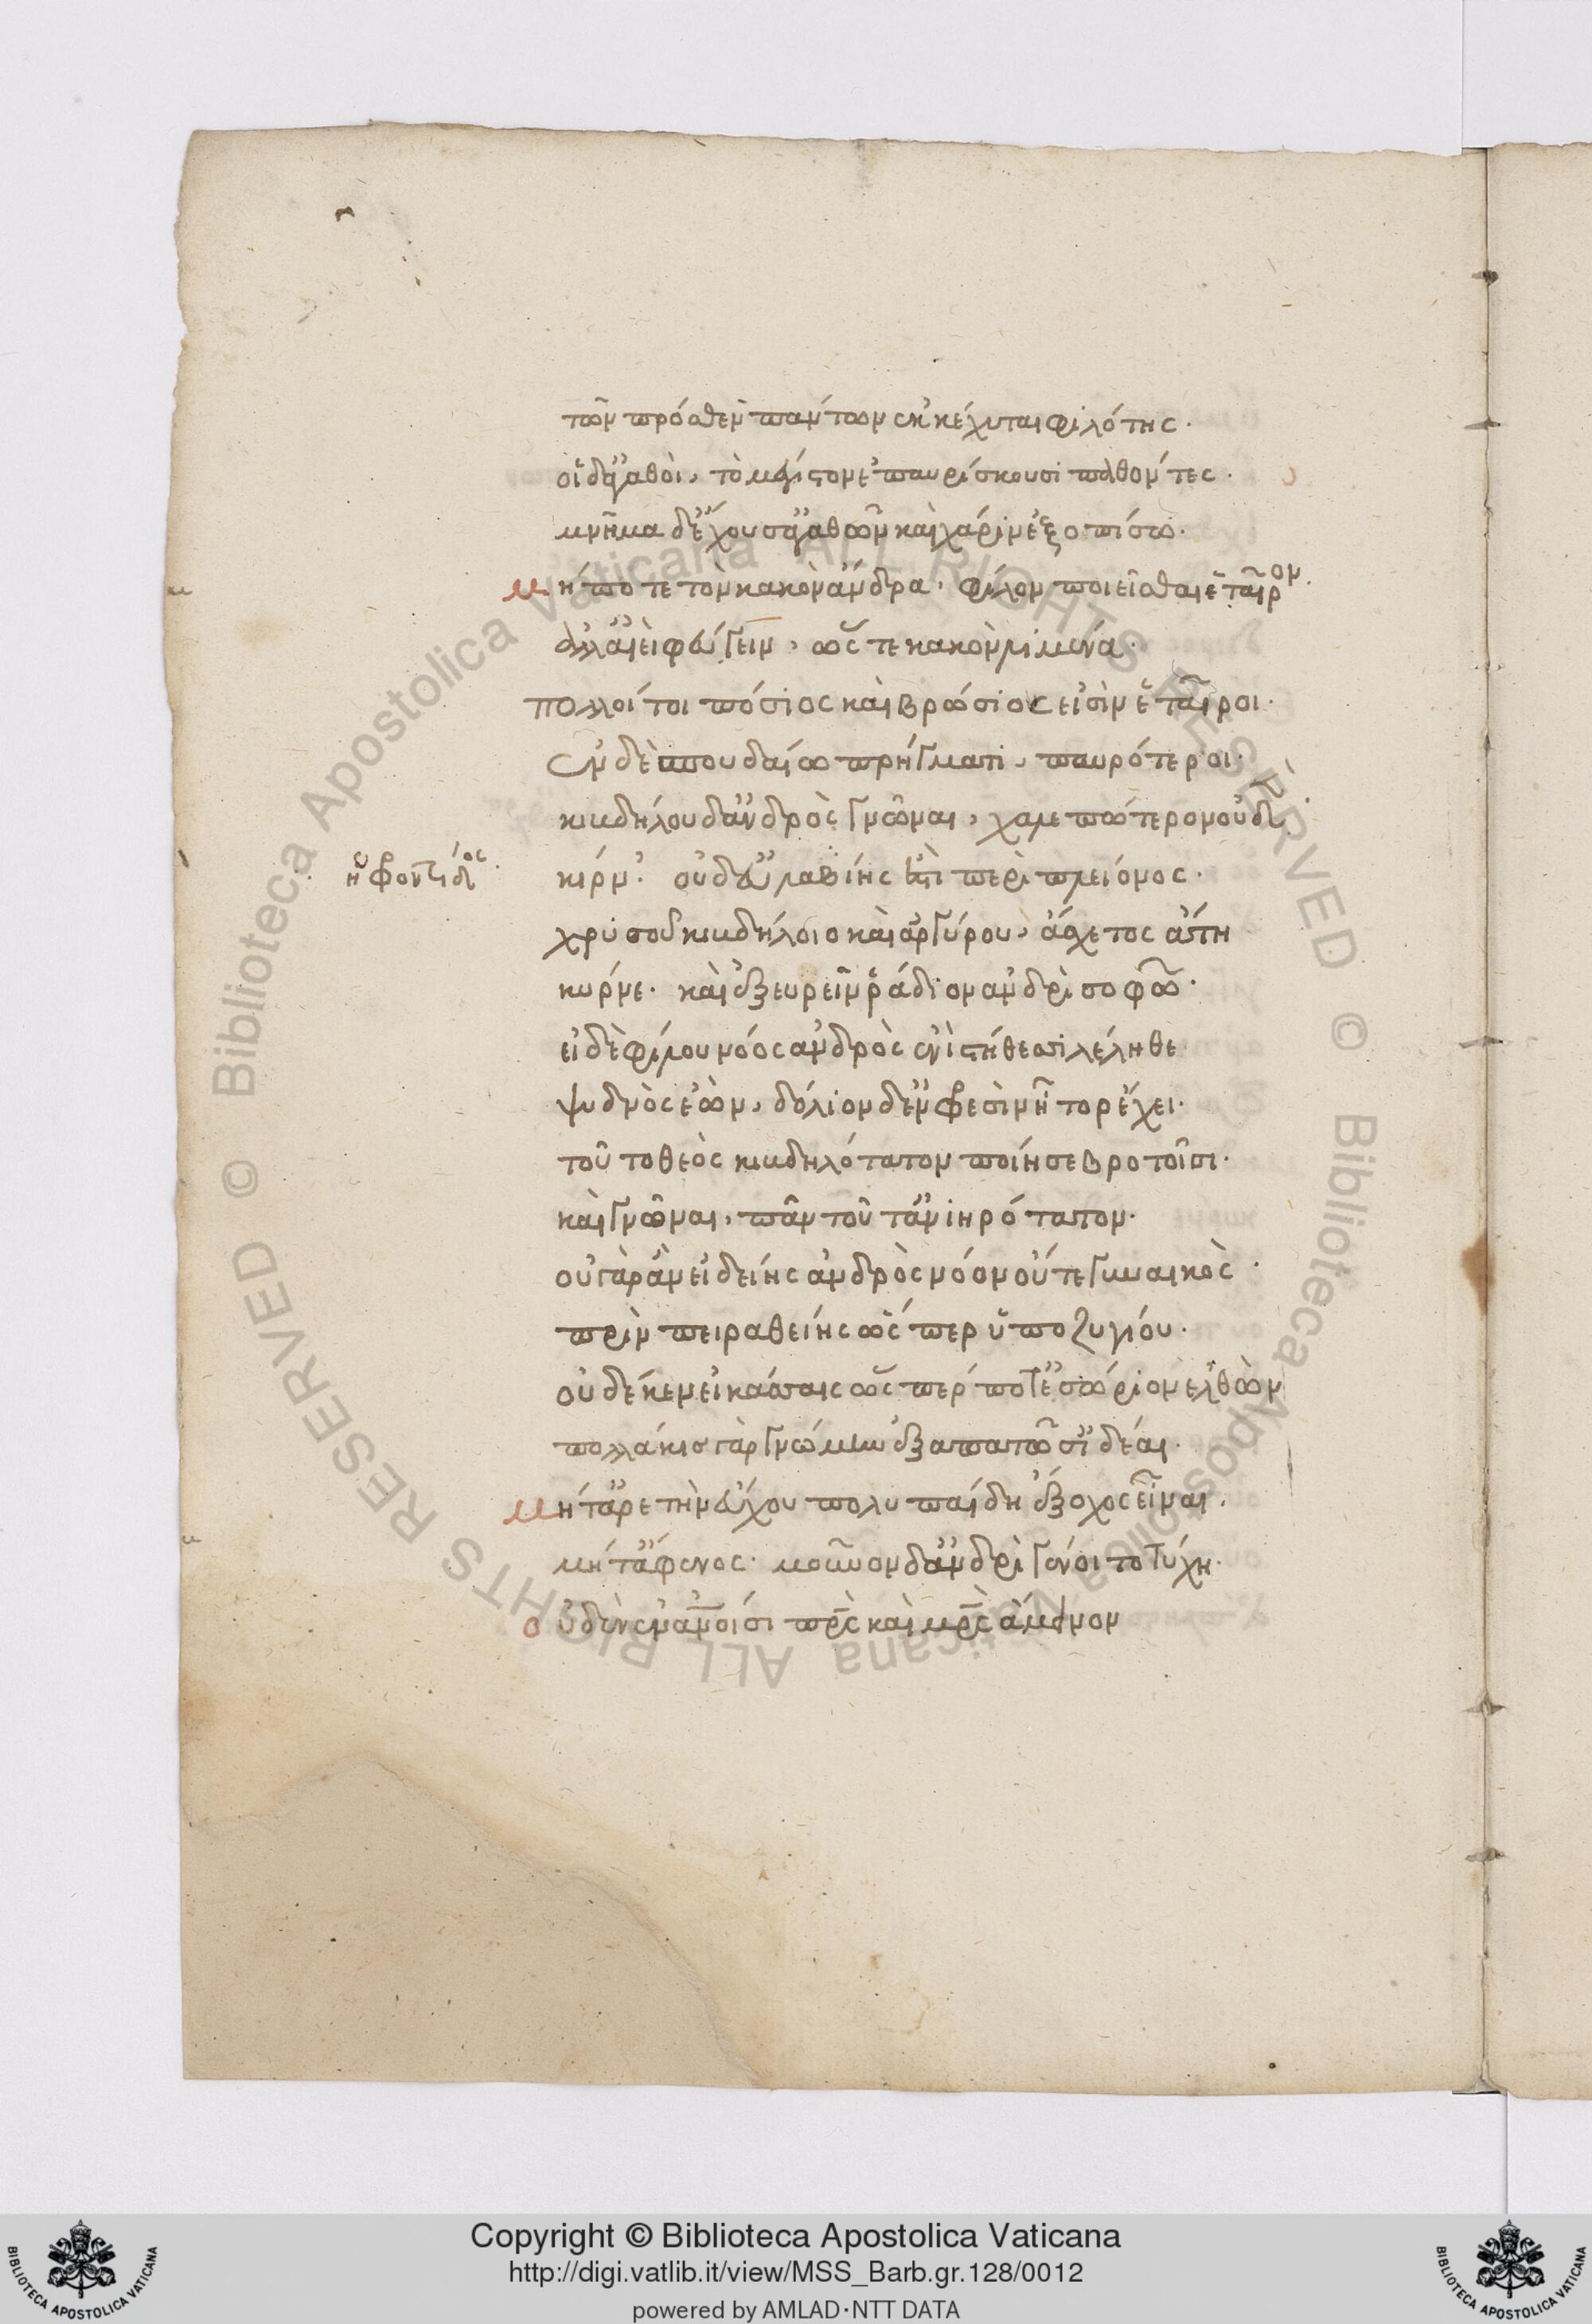 τῶν πρόσθεν πάντων ἐκκέχυται φιλότης.
οἱ δ' ἀγαθοὶ, τὸ μέγιστον ἐπαυρίσκουσι παθόντες.
μνῆμα δ' ἔχουσ' ἀγαθῶν καὶ χάριν ἐξοπίσω.
μήποτε τὸν κακὸν ἄνδρα, φίλον ποιεῖσθαι ἑταῖρον.
ἀλλ' αἰεὶ φεύγειν, ὥστε κακὸν λιμένα.
πολλοί τοι πόσιος καὶ βρώσιος εἰσὶν ἑταῖροι.
ἐν δὲ σπουδαίω πρήγματι, παυρότεροι.
κιβδήλου δ' ἀνδρὸς γνῶναι, χαλεπώτερον οὐδὲν.
ἢ φροντίδος.
κύρν'. οὐδ' εὐλαβίης ἐστὶ περὶ πλείονος.
χρυσοῦ κιβδήλοιο καὶ ἀργύρου, ἄσχετος ἄτη
κύρνε. καὶ ἐξευρεῖν ῥάδιον ἀνδρὶ σοφῶ.
εἰ δὲ φίλου νόος ἀνδρὸς ἐνὶ στήθεσι λέληθε
ψυδνὸς ἐὼν, δόλιον δ' ἐν φρεσὶν ἦτορ ἔχει.
τοῦτο θεὸς κιβδηλότατον ποίησε βροτοῖσι.
καὶ γνῶναι, πᾶν τοῦτ' ἀνιηρότατον.
οὐ γὰρ ἂν εἰδείης ἀνδρὸς νόον οὔτε γυναικὸς.
πρὶν πειραθείης ὥσπερ ὑποζυγίου.
οὐδέ κεν εἰκάσσαις ὥσπερ ποτ' ἐς ὥριον ἐλθὼν
πολλάκις γὰρ γνώμην ἐξαπατῶσ' ἰδέαι.
μήτ' ἀρετὴν εὔχου πολυπαΐδη ἔξοχος εἶναι.
μήτ' ἄφενος. μοῦνον δ' ἀνδρὶ γένοιτο τύχη.
οὐδὲν ἐν ἀνοισι πρς καὶ μρς ἄμεινον
Copyright © Biblioteca Apostolica Vaticana
http://digi.vatlib.it/view/MSS_Barb.gr.128/0012
powered by AMLAD·NTT DATA